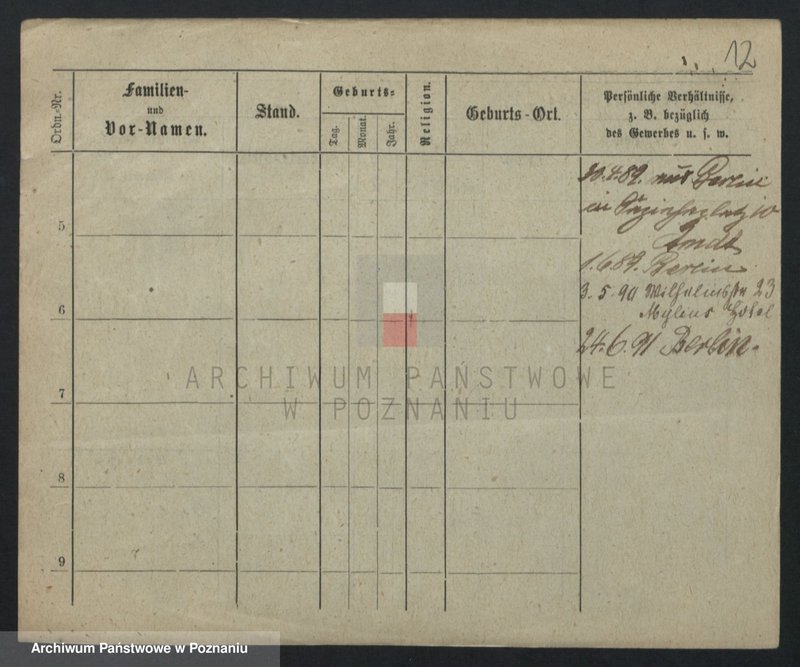 12
Ordn.-Nr.
Familien-
und
Vor-Namen.
Stand.
Geburts-
Tag.
Monat.
Jahr.
Religion.
Geburts-Ort.
Persönliche Verhältnisse,
z. B. bezüglich
des Gewerbes u. s. w.
5
6
7
8
9
Berlin
1.6.89. Berlin
3.5.90 Wilhelmstr 23
Mylius Hotel
24.6.91 Berlin.
ARCHIWUM PAŃSTWOWE
W POZNANIU
Archiwum Państwowe w Poznaniu